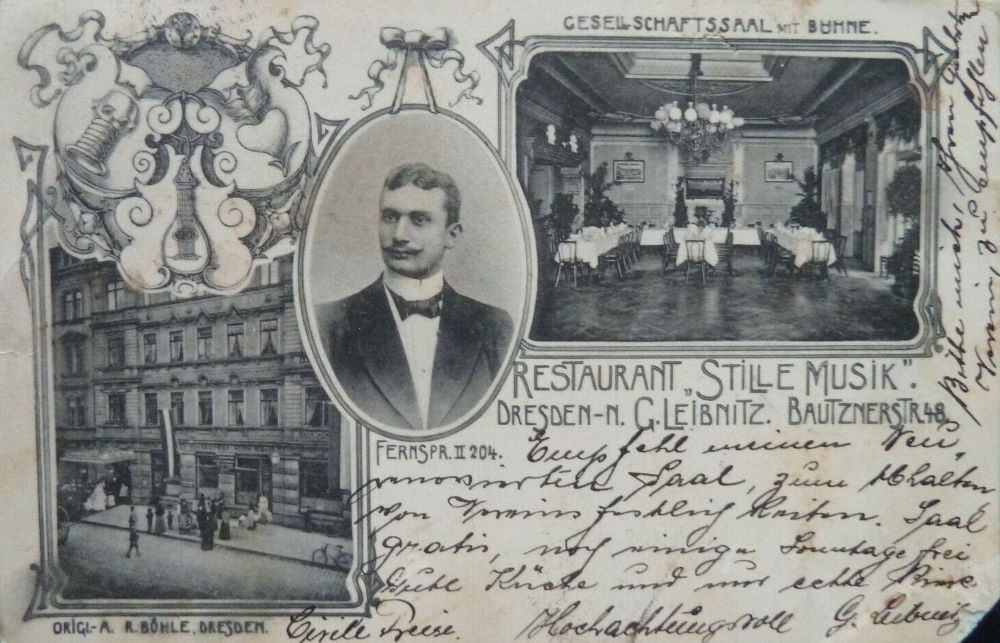 GESELLSCHAFTSSAAL MIT BÜHNE.
RESTAURANT „STILLE MUSIK“.
DRESDEN-N. G. LEIBNITZ. BAUTZNERSTR. 48.
FERNSPR. II 204.
Empfehl meinen Neu
renovierten Saal, zum Abhalten
von Vereinsfestlichkeiten. Saal
gratis, noch einige Sonntage frei
Gute Küche und nur echte Biere
Civile Preise. Hochachtungsvoll G. Leibnitz
Bitte mich, Ihren
Verein zu empfehlen
ORIGL-A. R. BÖHLE, DRESDEN.